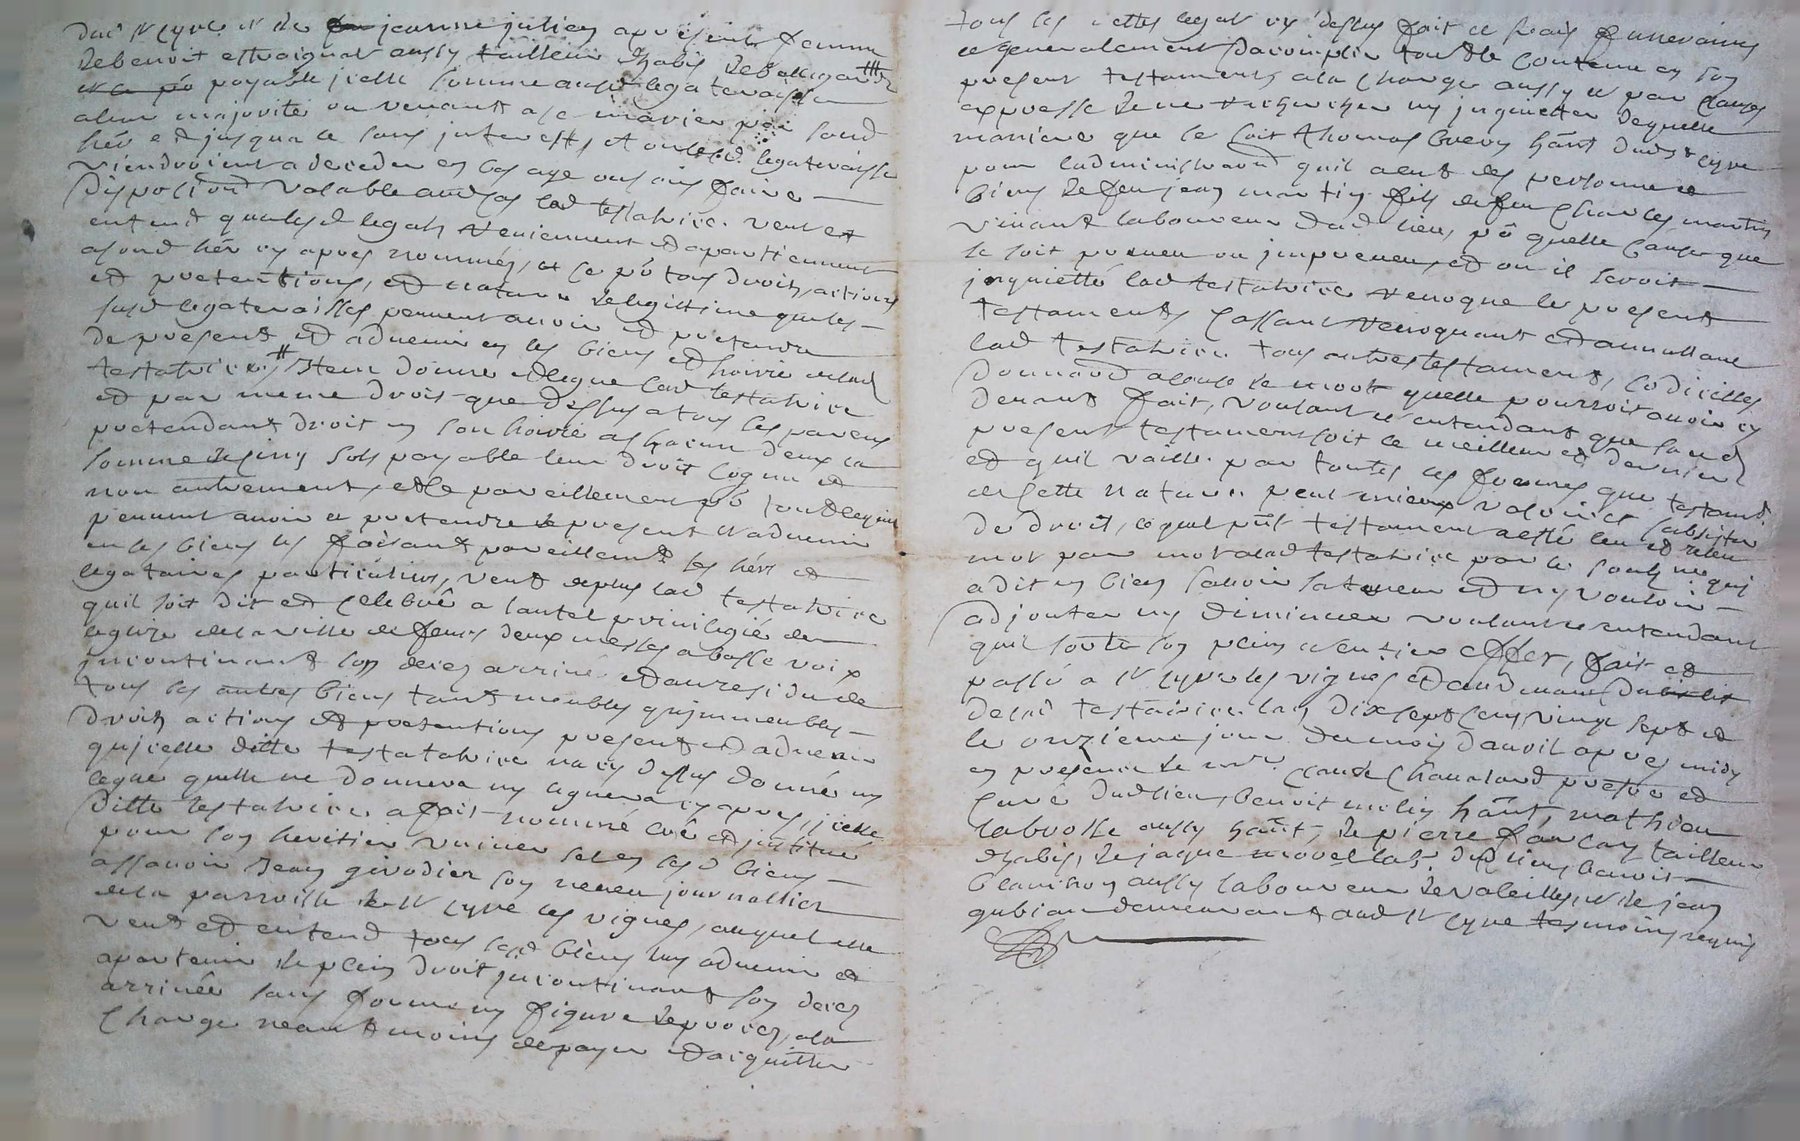 dud St Cyre et de jeanne julien a present femme
de benoit
payable jcelle somme ausd legateraisses
a leur majorité ou venant a se marier par sond
hér et jusqu'a ce sans jnterest, et ou lesd legateraisse
viendroient a deceder en bas age ou sans faire
disposition valable aud cas lad testatrice veut et
entend que lesd legats reviennent et apartiennent
a sond hér cy apres nommé, et ce pō tous droits, actions
et pretentions, et nature de legittime que les
susd legateraisses peuvent avoir et pretendre
de present et advenir en les biens et hoirie de lad
testatrice, Item donne et legue lad testatrice
et par meme droit que dessus a tous les parens
pretendant droit en son hoirie a chacun d'eux la
somme de cinq sols payable leur droit cognu et
non autrement, et ce pareillement pō tout ce qui
peuvent avoir et pretendre de present et advenir
en les biens les faisant pareillemt ses hérs et
legataires particuliers, veut de plus lad testatrice
quil soit dit et celebré a lautel privilegié de
leglise de la ville de feurs deux messes a basse voix
jncontinant son deces arrivé et au residu de
tous ses autres biens tant meubles qujmmeubles
droits actions et pretentions presents et advenir
qujcelle ditte testatatrice na cy dessus donné ny
legué quelle ne donnera ny leguera cy apres, jcelle
ditte testatrice a fait nommé creé et jnstitué
pour son heritier universel en sesd biens
assavoir Jean girodier son neveu journallier
de la parroisse de St Cyre les vignes, auquel elle
veut et entend tous sesd biens luy advenir et
apartenir de plein droit jncontinant son deces
arrivée sans forme ny figure de proces, a la
Charge neantmoins de payer et daquitter
tous les dettes legat cy dessus fait et frais funeraires
et generalement dacomplir tout le contenu en son
present testament, a la charge aussy et par clauses
expresse de ne rechercher ny jnquietter de quelle
maniere que ce soit thomas brery hāñt dud St Cyre
pour ladministraõn quil a eut des personne et
biens de feu jean martin fils de feu charles martin
vivant laboureur dud lieu, pō quelle cause que
ce soit preveu ou jmpreveu, et ou il seroit
jnquietté lad testatrice revoque le present
testament, Cassant revoquant et annullant
lad testatrice tous autres testaments, codicilles
donnaõn a cause de mort quelle pourroit avoir cy
devant fait, voulant et entendant que sond
present testament soit le meilleur et dernier
et quil vaille par toutes les formes que testamt
de cette nature peut mieux valoir et subsister
de droit, lequel pñt testament a esté leu et releu
mot par mot a lad testatrice par le soubs né qui
a dit en bien savoir sa teneur et ny vouloir
adjouter ny diminuer voulant et entendant
quil sorte son plein et entier effet, fait et
passé a St Cyre les vignes et au domicile
de lad testatrice lan dix sept cens vingt sept et
le onzieme jour du mois d'avril apres midy
en presence de mre Claude Chamband prestre et
Curé dud lieu, benoit molin hāñt, mathieu
labrosse aussy hāñt, de pierre tailleur
dhabis, de jaque dud lieu benoit
aussy laboureur de valeilles, et de jean
gubian demeurant aud St Cyre tesmoins requis